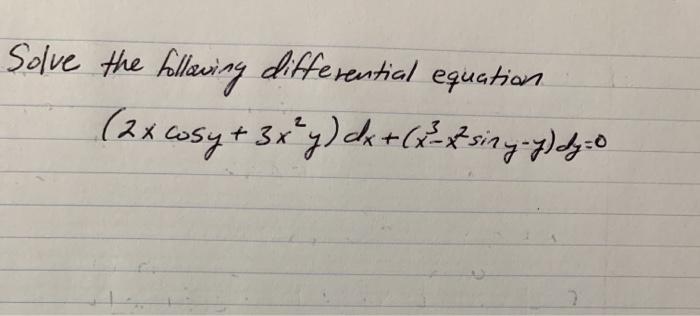 Solve the following differential equation
(2x cosy + 3x²y) dx + (x³-x² siny-y) dy=0